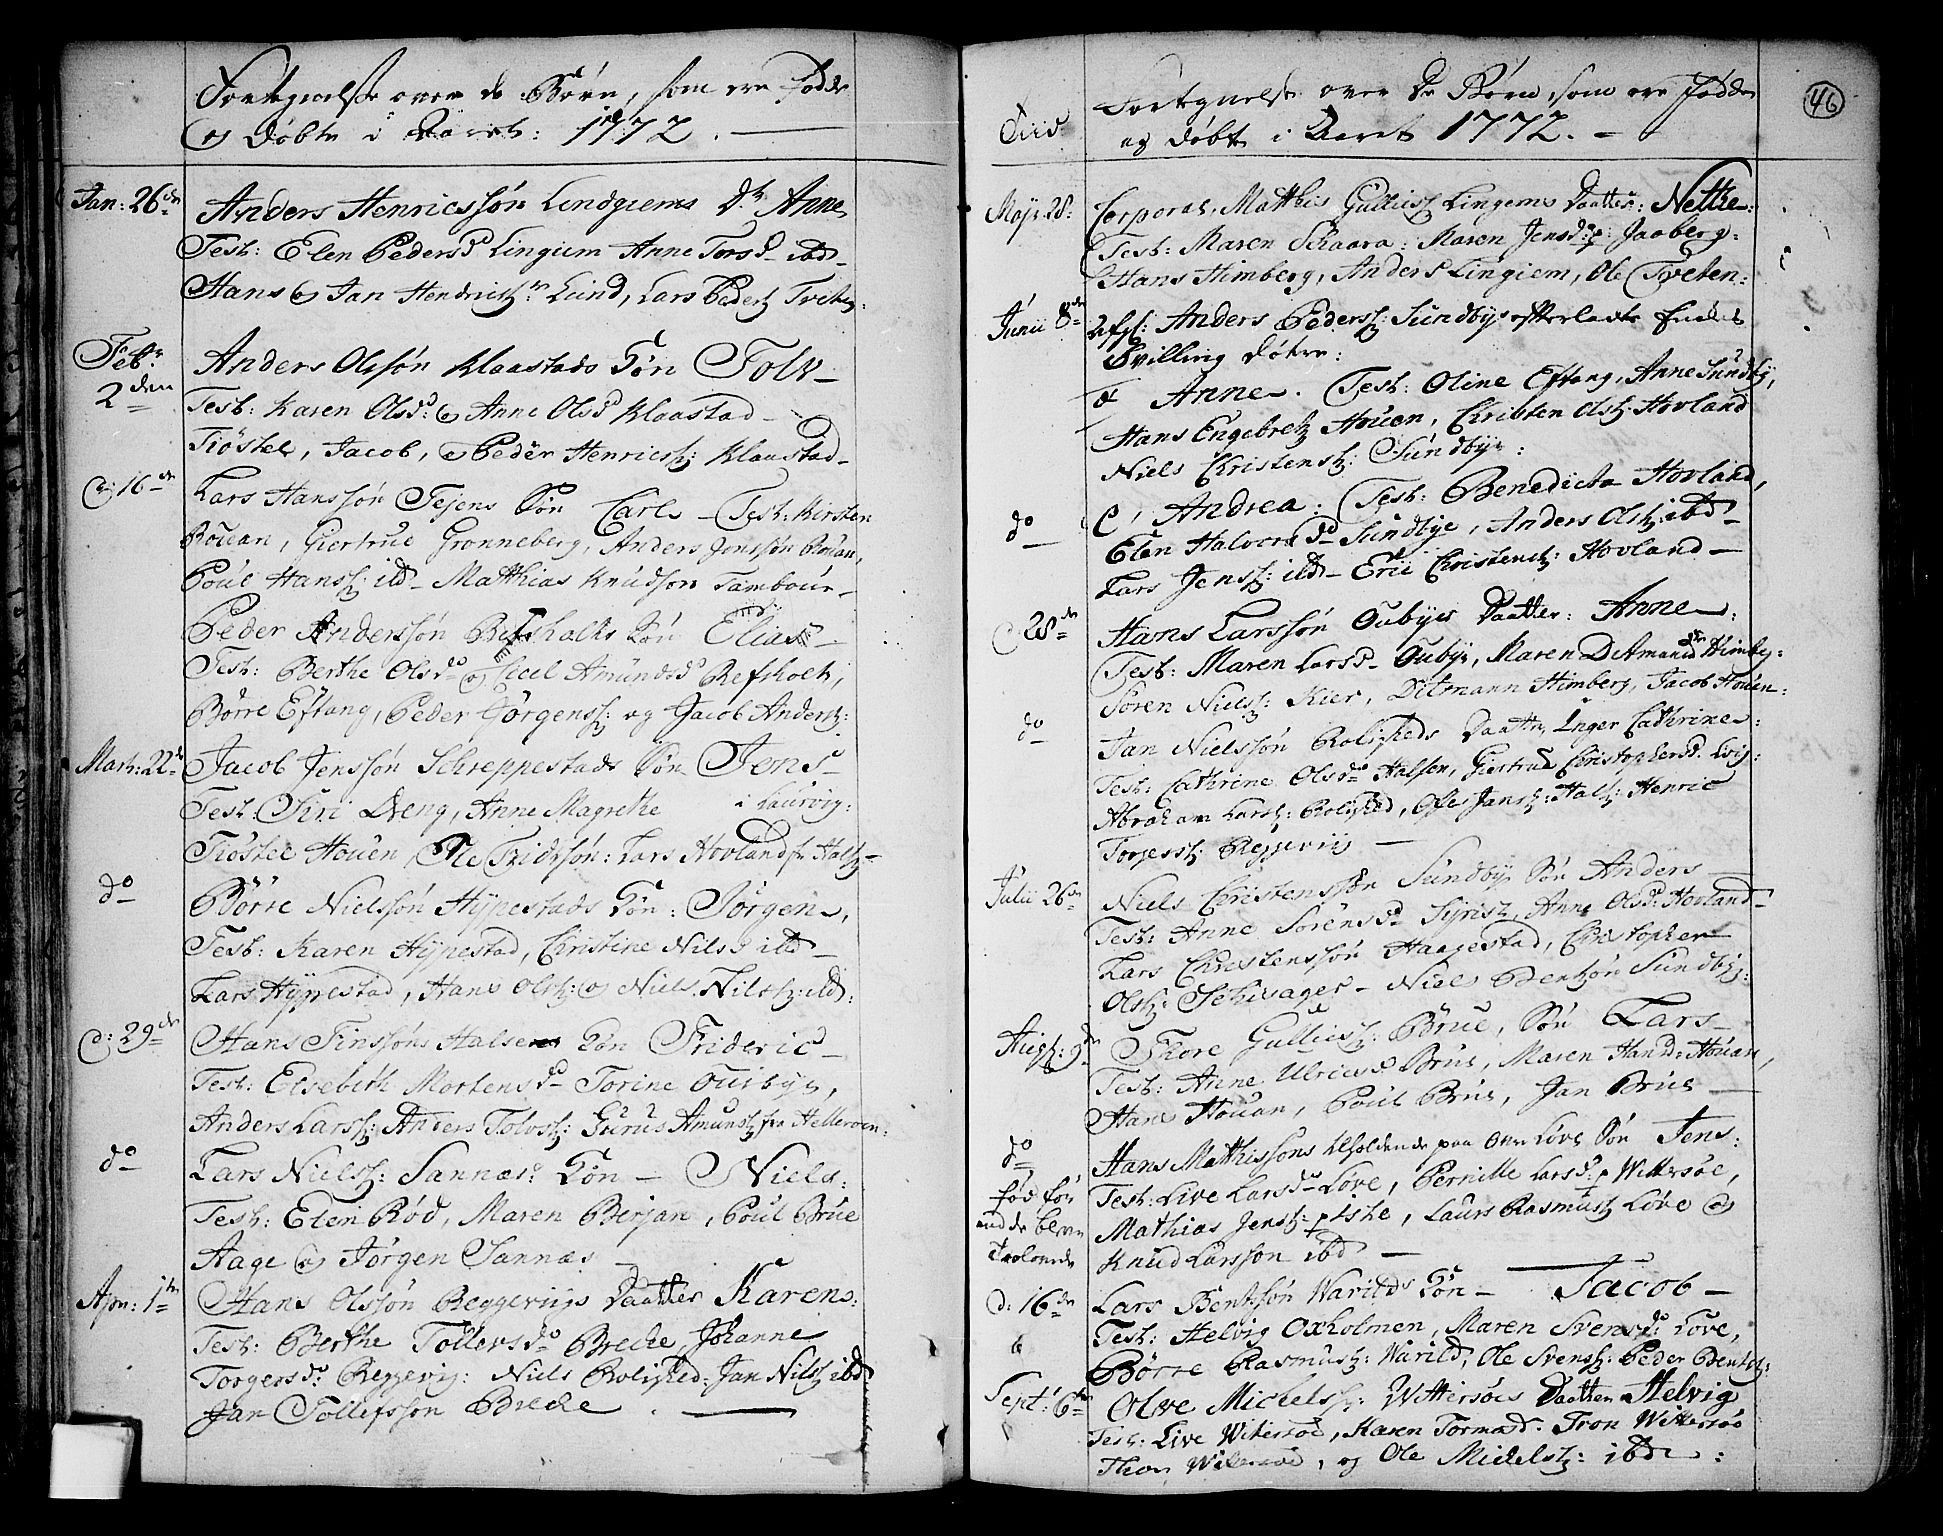 Fortegnelse over de Børn, som ere Fødde
og Døbte i Aaret: 1772.
Jan: 26de
Anders Henricssøn Lindgiems Dr. Anne
Test: Elen Pedersd Lingum Anne Torsd ibd
Hans og Jan Hendrichs: Lund, Lars Peders
Febr: 2den
Anders Olssøn Klaastads Søn Tolv
Test: Karen Olsd: og Anne Olsd Klaastad
Tiøstel, Jacob, og Peder Henrichs: Klaastad
d: 16de
Lars Hanssøn Fejens Søn Carl Test: Kirsten
Rouan, Giertrue Grønneberg, Anders Jenssøn Rouan,
Poul Hanss: ibd Matthias Knudsøn Tambour
Peder Anderssøn Refsholts Søn Elias
Test: Berthe Olsd: og Cicel Amundsd Refsholt,
Børre Eftang, Peder Jørgens: og Jacob Anders:
Marti: 22de
Jacob Jenssøn Schreppestads Søn Jens
Test: Siri Eeng, Anne Magrethe i Laurvig:
Tiøstel Houen, Ole Fridrsøn: Lars Hovland
do
Børre Nielssøn Hypestads Søn: Jørgen,
Test: Karen Hypestad, Christine Nilsd ibd
Lars Hypestad, Hans Ols: og Niels Nils: ibd:
d: 29de
Hans Finssøns Halsen Søn Frideric
Test: Elsebeth Mortensd Torine Oubye,
Anders Lars: Anders Tolvs: Gurus Amunds fra Helleroen:
do
Lars Niels: Sannæs: Søn Niels:
Test: Elen Rød, Maren Berjan, Poul Brue
Aage og Jørgen Sannæs
Apr: 1te
Hans Olssøn Reggevigs Daatter Karen:
Test: Berthe Tollersd: Brecke, Johanne
Torgersd: Reggevig: Niels Rolighed: Jan Nils: ibd
Jan Tollefssøn Brecke
46
Fortegnelse over De Børn, som ere Fødde
og døbte i Aaret 1772.
Maji: 28:
Corporal, Matthis Gullics: Lingems Daatter: Nethe:
Test: Maren Skaara: Maren Jensd: p: Jaaberg
Hans Himberg, Anders Lingiem, Ole Tveten
Junii 8de
Afgl: Anders Pederss: Sundbys efterladte Enkes
Tvilling Døtre:
Anne. Test: Oline Eftang, Anne Sundby,
Hans Engebrets Houen, Christen Ols: Hovland
Niels Christens: Sundbye:
do
Andrea: Test: Benedicta Hovland,
Elen Halvorsd Sundbye, Anders Ols: ibd
Lars Jens: ibd Eric Christens: Hovland
28de
Hans Larssøn Oubyes Daatter: Anne:
Test: Maren Larsd Oubye, Maren Himberg:
Søren Niels: Kier, Ditmann Himberg, Jacob Houen
do
Jan Nielssøn Roligheds Daatter Inger Cathrine:
Test: Cathrine Olsd: Halsen, Giertrue Christophersd:
Abraham Lars: Rolighed, Jans: Hals: Henric
Torgers: Reggevig
Julii 26de
Niels Christenssøn Sundby Søn Anders
Test: Anne Sørensd Syrist, Anne Olsd: Hovland
Lars Christenssøn Haagestad, Christopher
Ols: Schisager Niels Bentsøn Sundby:
Aug: 9de
Thore Gullics: Brue, Søn Lars
Test: Anne Ulricsd Brue, Maren Hansd: Houan,
Hans Houan, Poul Brue, Jan Brue
do
Hans Matthissøns opholdende paa Over Løve Søn Jens:
Test: Live Larsd Løve, Pernille Larsd: p Wittersøe,
Mathias Jens: p Aske, Laurs Rasmus: Løve og
Knud Larssøn ibd
d: 16de
Lars Bentsøn Warilds Søn Jacob
Test: Helvig Oxholmen, Maren Svensd: Løve,
Børre Rasmus: Warild, Ole Svens: Peder Bents:
Sept: 6te
Olve Michels: Wittersøes Daatter Helvig
Test: Live Witersøe, Karen Tormod Tron Wittersøe
Thor Witersøe, og Ole Michels: ibd: